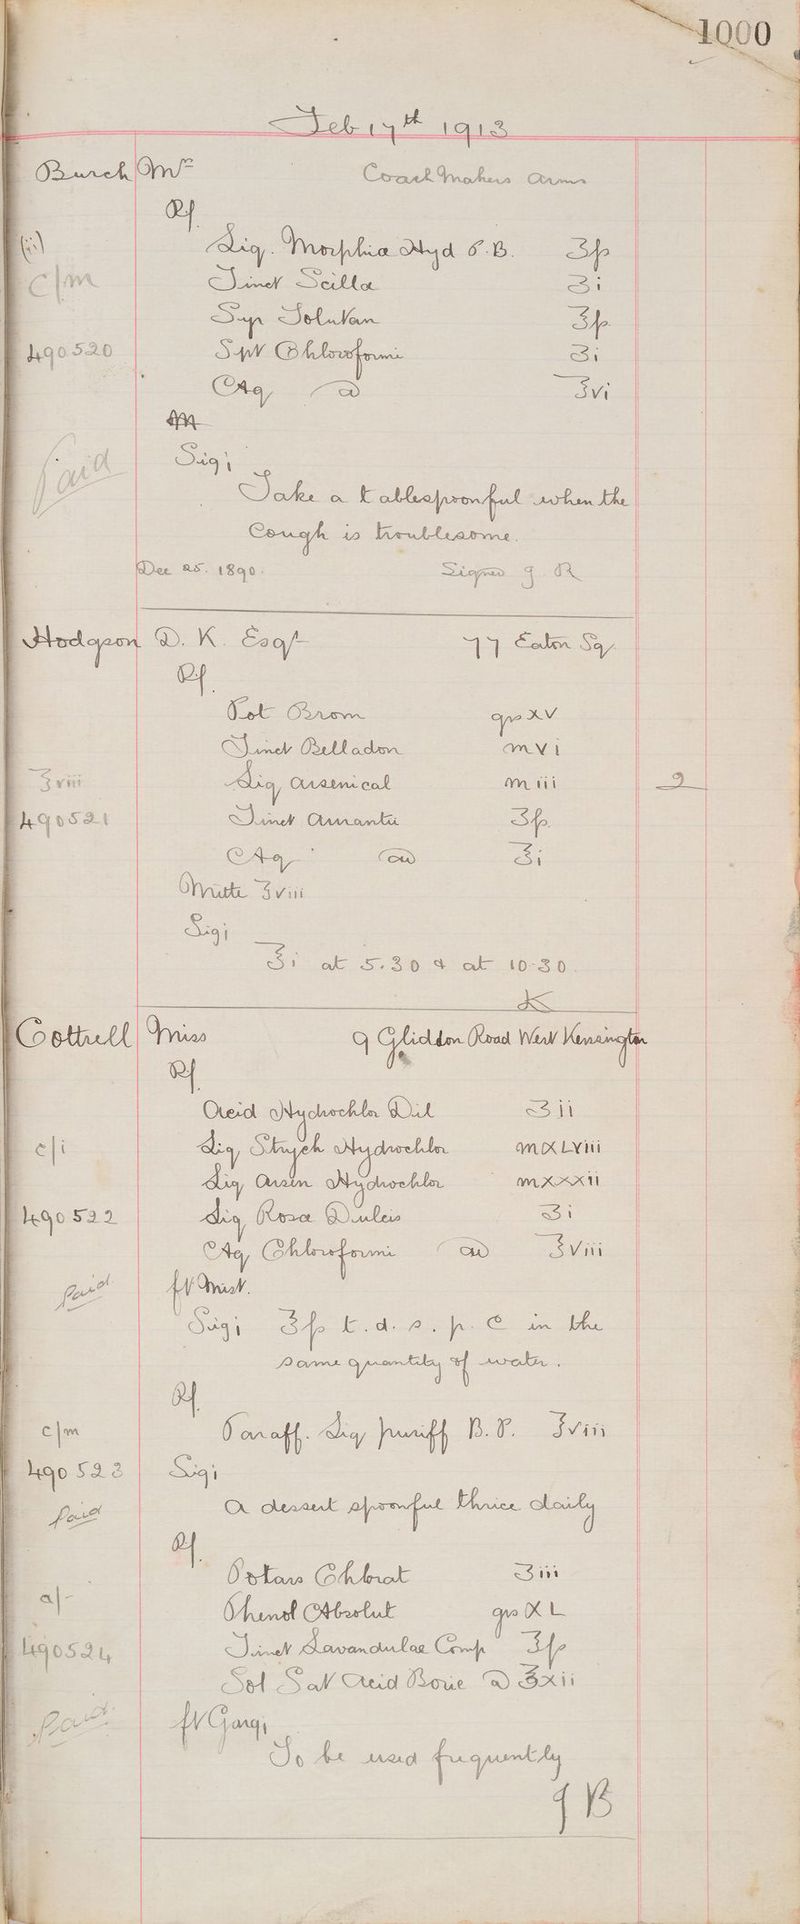 1000
Feb 17th 1913
Burch Mrs Coach Makers Arms
Rx
(ii) Liq. Morphiae Hyd P.B. ʒß
c/m Tinct Scilla ʒi
Syr Tolutan ʒß
490520 Spt Chloroformi ʒi
Aq ad ℥vi
M
Paid Sig;
Take a tablespoonful when the
cough is troublesome.
Dec 25. 1890. Signed J. R
Hodgson D. K. Esqr 77 Eaton Sq
Rx
Pot Brom grs XV
Tinct Belladon m vi
℥viii Liq Arsenical m iii 2
490521 Tinct Aurantii ʒß
Aq ad ℥i
Mitte ℥viii
Sig;
℥i at 5.30 & at 10.30
K
Cottrell Miss 9 Gliddon Road West Kensington
Rx
Acid Hydrochlor Dil ʒii
c/i Liq Strych Hydrochlor m XLviii
Liq Arsen Hydrochlor m xxxii
490522 Liq Rosae Dulcis ʒi
Aq Chloroformi ad ℥viii
Paid ft Mist.
Sig; ℥ß t.d.s. p.c in the
same quantity of water.
Rx
c/m Paraff. Liq puriff B.P. ℥viii
490523 Sig;
Paid A dessert spoonful thrice daily
Rx
Potass Chlorat ʒiii
a/- Phenol Absolut grs XL
490524 Tinct Lavandulae Comp ℥ß
Sol Sat Acid Boric ad ℥xii
Paid ft Garg;
To be used frequently
J B